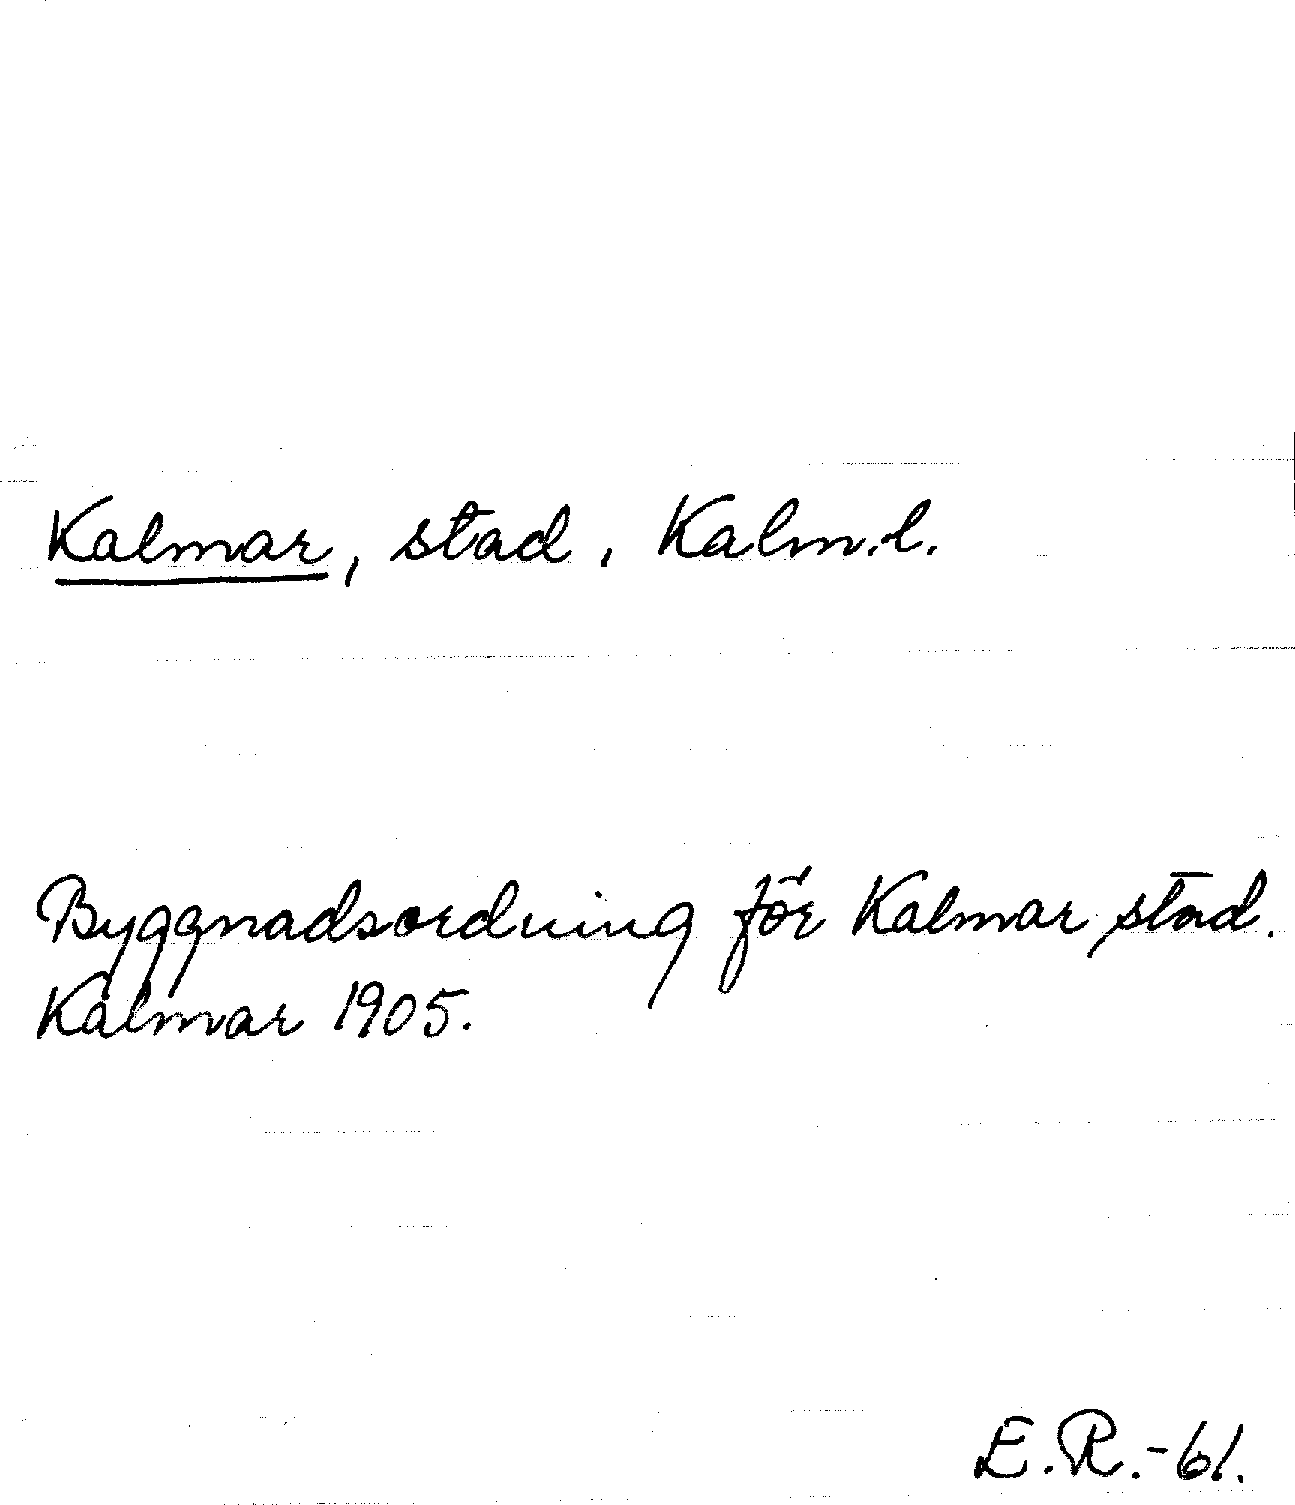 Kalmar, stad, Kalm.l.
Byggnadsordning för Kalmar stad.
Kalmar 1905.
E.R.-61.